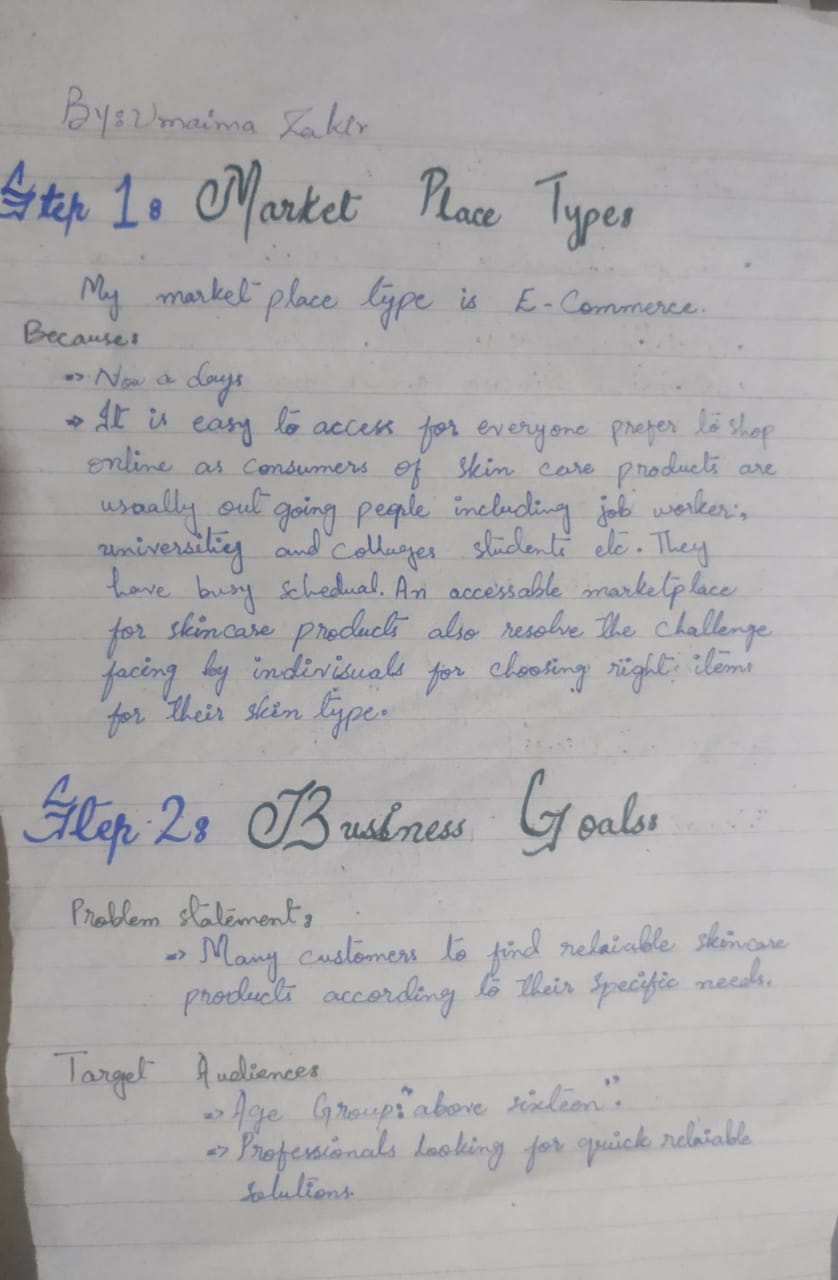 By: Umaima Zakir
Step 1: Market Place Types
My market place type is E-Commerce.
Because:
=> Now a days
=> It is easy to access for everyone prefer to shop
online as consumers of skin care products are
usually out going people including job worker,
universitieg and collueges students etc. They
have busy schedual. An accessable marketplace
for skincare products also resolve the challenge
facing by indivisuals for choosing right items
for their skin type.
Step 2: Business Goals:
Problem statement:
=> Many customers to find relaiable skincare
products according to their specific needs.
Target Audiences
=> Age Group: "above sixteen".
=> Professionals looking for quick relaiable
solutions.